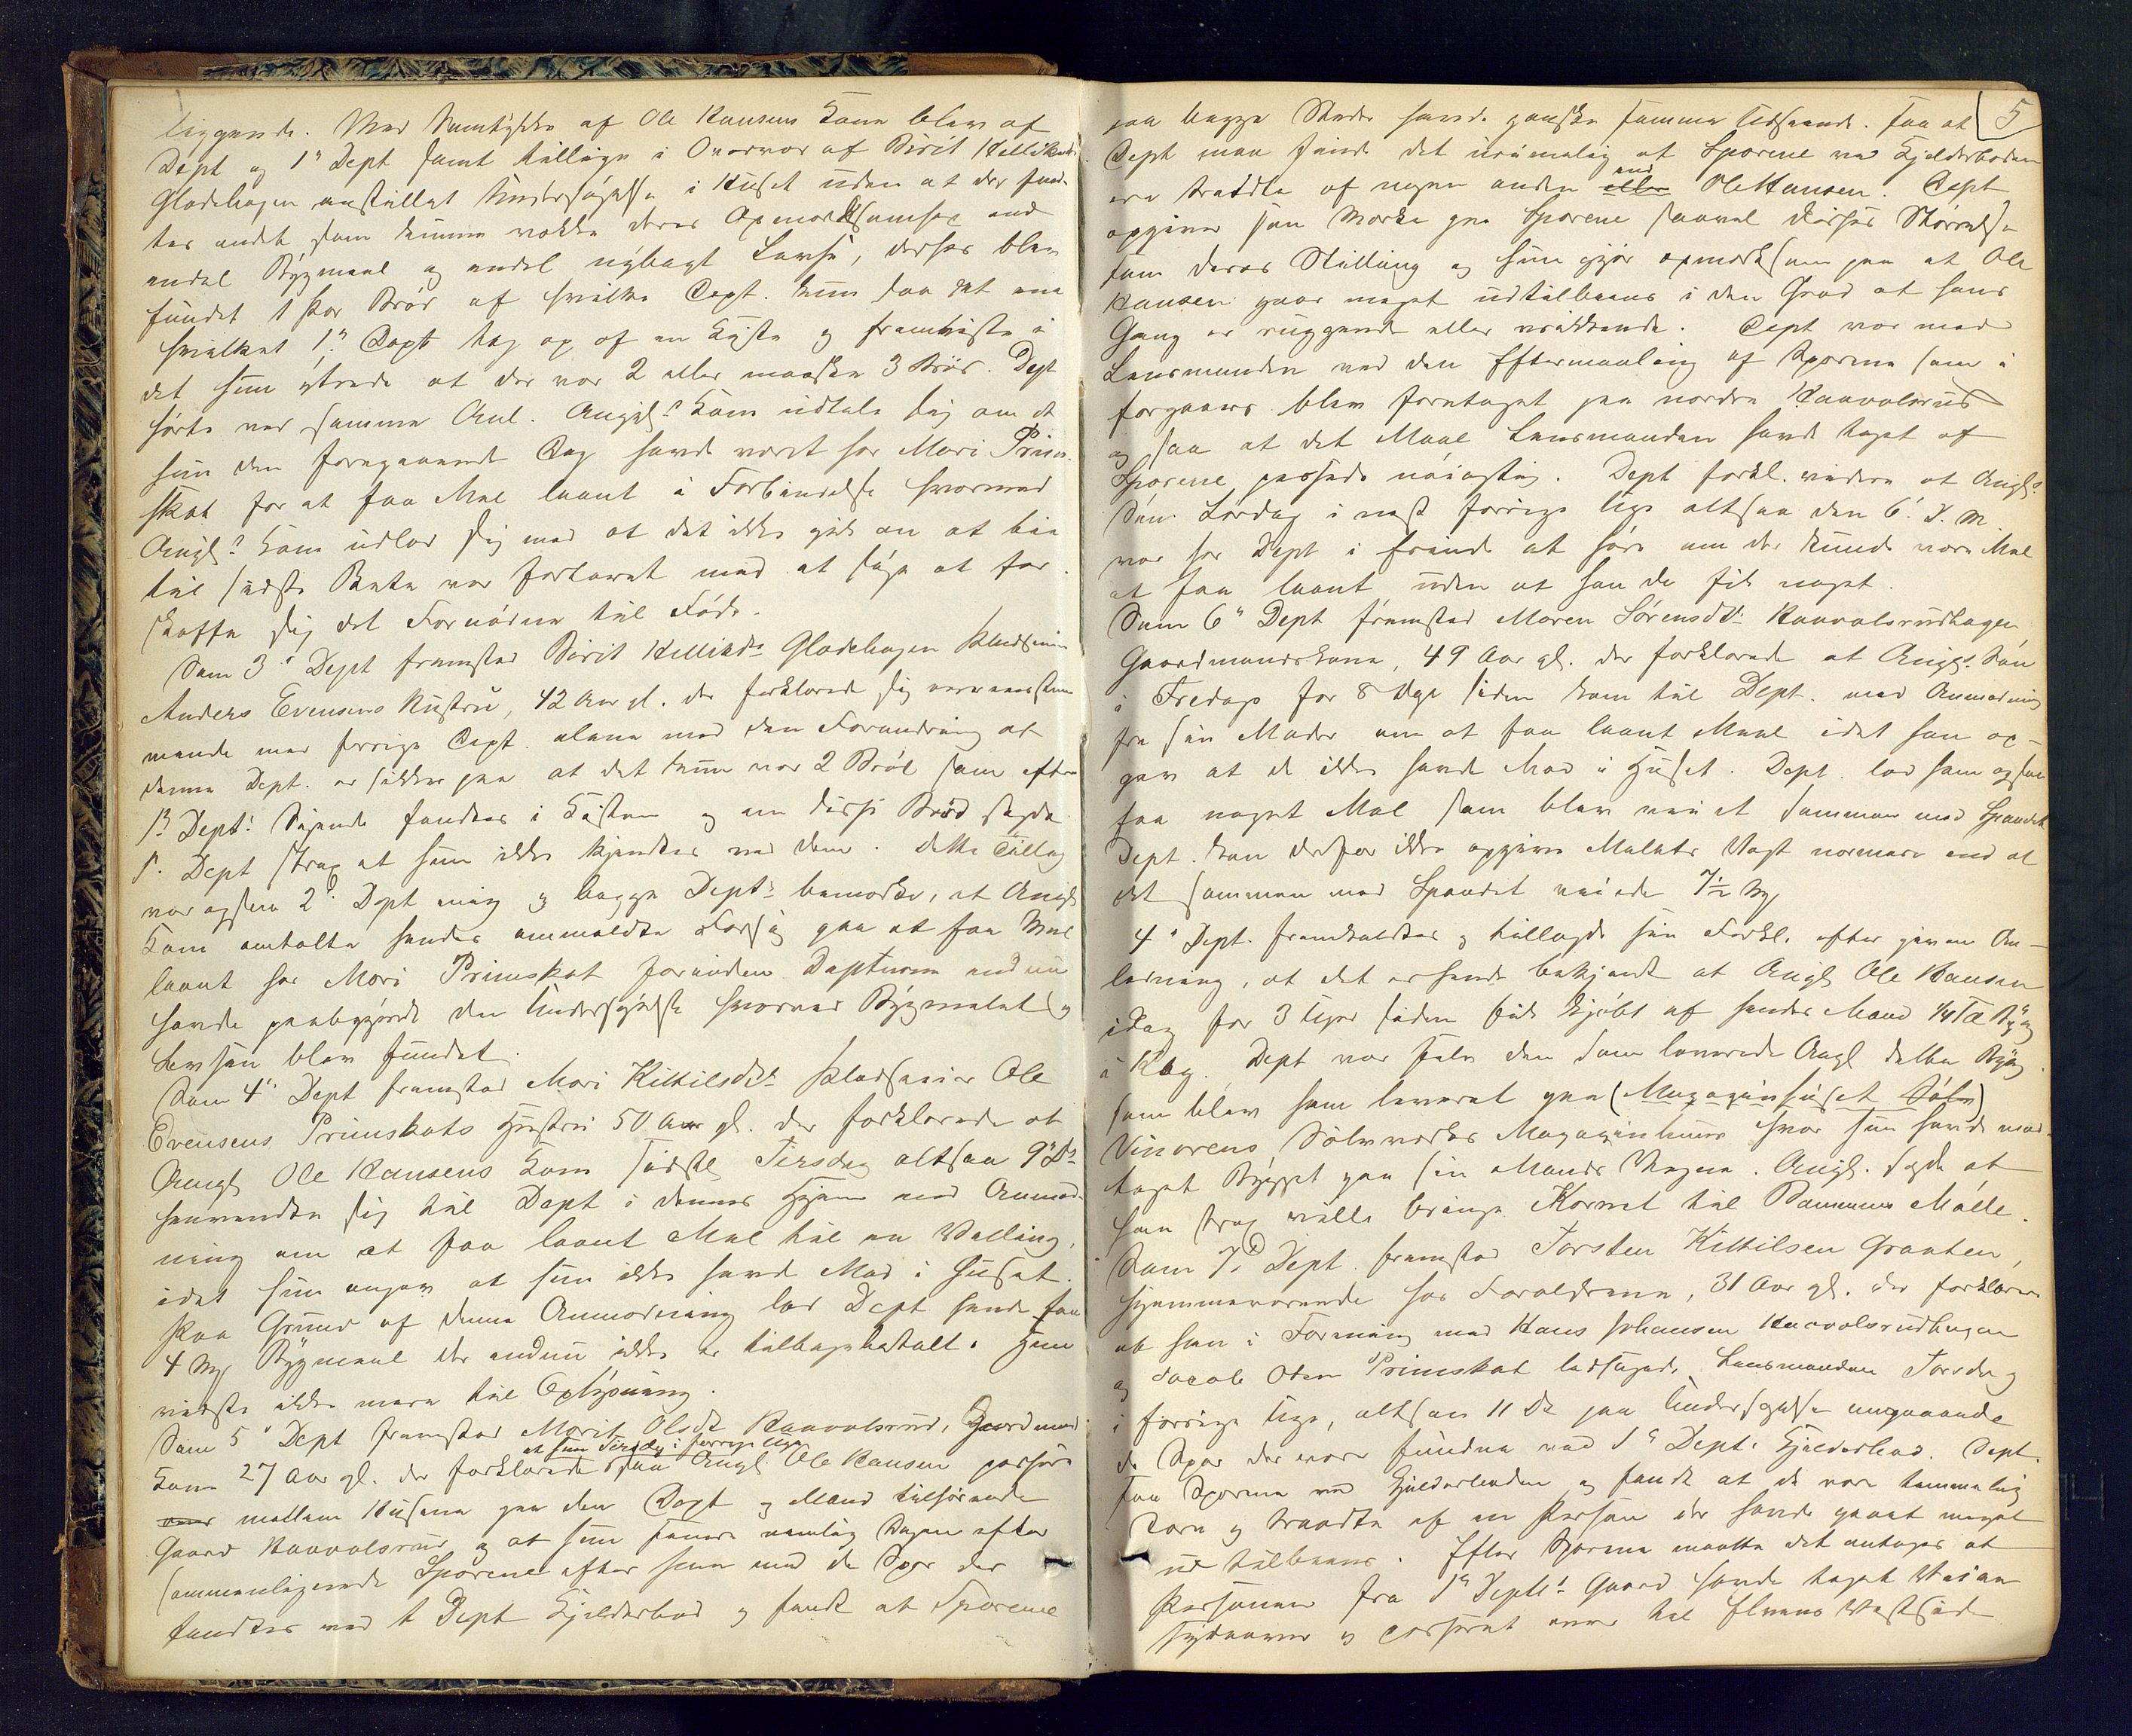 liggende. Med Samtykke af Ole Hansens Kone blev af
Dept og 1ste Dept samt tillige i Overvær af Birit Kittilsd.
Gladehagen anstillet Undersøgelse i Huset uden at der fand-
tes andet som kunne vække deres Opmærksomhed end
endel Bygmeel og endel nybagt Lefse, derhos blev
fundet 1 Par Brød af hvilke Dept. kun saa det ene
hvilket 1ste Dept tog op af en Kiste og fremviste i
det hun ytrede at der var 2 eller maaske 3 Brød. Dept
hørte ved samme Anl. Angjels Kone udtale sig om at
hun den foregaaende Dag havde været hos Mari Prim-
skat for at faa Mel laant i Forbindelse hvormed
Angjs Kone udlod sig med at det ikke gik an at bie
til sidste Beta var fortæret med at søge at for-
skaffe sig det Fornødne til Føde.
Som 3die Dept fremstod Birit Kittilsdr Gladehagen Pladseier
Anders Evensens Hustru, 42 Aar gl. der forklarede sig overensstem-
mende med forrige Dept. alene med den Forandring at
denne Dept. er sikker paa at det kun var 2 Brød som efter
1ste Depts Sigende fandtes i Kisten og om disse Brød sagde
1. Dept strax at hun ikke kjendtes ved dem. Dette Tillæg
var ogsaa 2det Dept enig og begge Depts bemærker, at Angjs
Kone omtalte hendes anmeldte Forsøg paa at faa Mel
laant hos Mari Primskat forinden Depterne endnu
havde paabegyndt den Undersøgelse hvorved Bygmelet og
Lefsen blev fundet.
Som 4de Dept fremstod Mari Kittilsdtr Pladseier Ole
Evensens Primskats Hustru 50 Aar gl. der forklarede at
Angjs Ole Hansens Kone sidste Tirsdag altsaa 9de Ds
henvendte sig til Dept i dennes Hjem med Anmod-
ning om at faa laant Mel til en Velling,
idet hun angav at hun ikke havde Mad i Huset.
Paa Grund af denne Anmodning lod Dept hende faa
4 Mk Bygmeel der endnu ikke er tilbagebetalt. Hun
vidste ikke mere til Oplysning.
Som 5te Dept fremstod Marit Olsdtr Raavolsrud, Gaardmands
at hun Tirsdag i forrige Uge
Kone 27 Aar gl. der forklarede saa Angjs Ole Hansen passere
over mellem Husene paa den Dept og Mand tilhørende
Gaard Raavolsrud og at hun senere nemlig Dagen efter
sammenlignede Sporene efter ham med de Spor der
fandtes ved 1 Dept Kjelderbod og fandt at Sporene
5
paa begge Steder havde ganske samme Udseende. Saa at
Dept maa finde det urimelig at Sporene ved Kjelderboden
end
ere traadte af nogen anden eller Ole Hansen. Dept
opgiver som Mærke paa Sporene saavel disses Størrelse
som deres Stilling og hun gjør opmærksom paa at Ole
Hansen gaar meget udtilbeens i den Grad at hans
Gang er ruggende eller vrikkende. Dept var med
Lensmanden ved den Eftermaaling af Sporene som i
forgaars blev foretaget paa nordre Raavolsrud
og saa at det Maal Lensmanden havde taget af
Sporene passede nøiagtig. Dept forkl. videre at Angjs
Søn Lørdag i næst forrige Uge altsaa den 6. d. M.
var hos Dept i Ærinde at høre om der kunde være Mel
at faa laant uden at han da fik noget.
Som 6te Dept fremstod Maren Sørensdtr Raavolsrudhagen,
Gaardmandskone, 49 Aar gl. der forklarede at Angjs Søn
i Fredags for 8 Dage siden kom til Dept. med Anmodning
fra sin Moder om at faa laant Meel idet han op-
gav at de ikke havde Mad i Huset. Dept. lod ham ogsaa
faa noget Mel som blev veiet sammen med Spandet
Dept. kan derfor ikke opgive Melets Vægt nærmere end at
det sammen med Spandet veiede 7½ Mk
4de Dept. fremkaldtes og tillagde sin Forkl. efter given An-
ledning, at det er hende bekjendt at Angjs Ole Hansen
idag for 3 Uger siden fik kjøbt af hendes Mand ¼ Td Byg
i Korn. Dept var selv den som leverede Angj dette Byg
som blev ham leveret paa (Magazinhuset Sølv)
Vinorens Sølvverks Magazinhuus hvor hun havde mod-
taget Bygget paa sin Mands Vegne. Angjs. sagde at
han strax vilde bringe Kornet til Bammens Mølle.
Som 7de Dept. fremstod Torsten Kittilsen Graaten,
hjemmeværende hos Forældrene, 31 Aar gl. der forklarer
at han i Forening med Hans Johansen Raavolsrudhagen
og Jacob Olsen Primskat ledsagede Lensmanden Torsdag
i forrige Uge, altsaa 11 Ds paa Undersøgelse angaaende
de Spor der vare fundne ved 1ste Depts Kjelderbod. Dept.
saa Sporene ved Kjelderboden og fandt at de vare temmelig
store og traadte af en Person der havde gaaet meget
ud tilbeens. Efter Sporene maatte det antages at
Personen fra 1ste Depts Gaard havde taget Veien
sydover og passeret over til Elvens Vestside